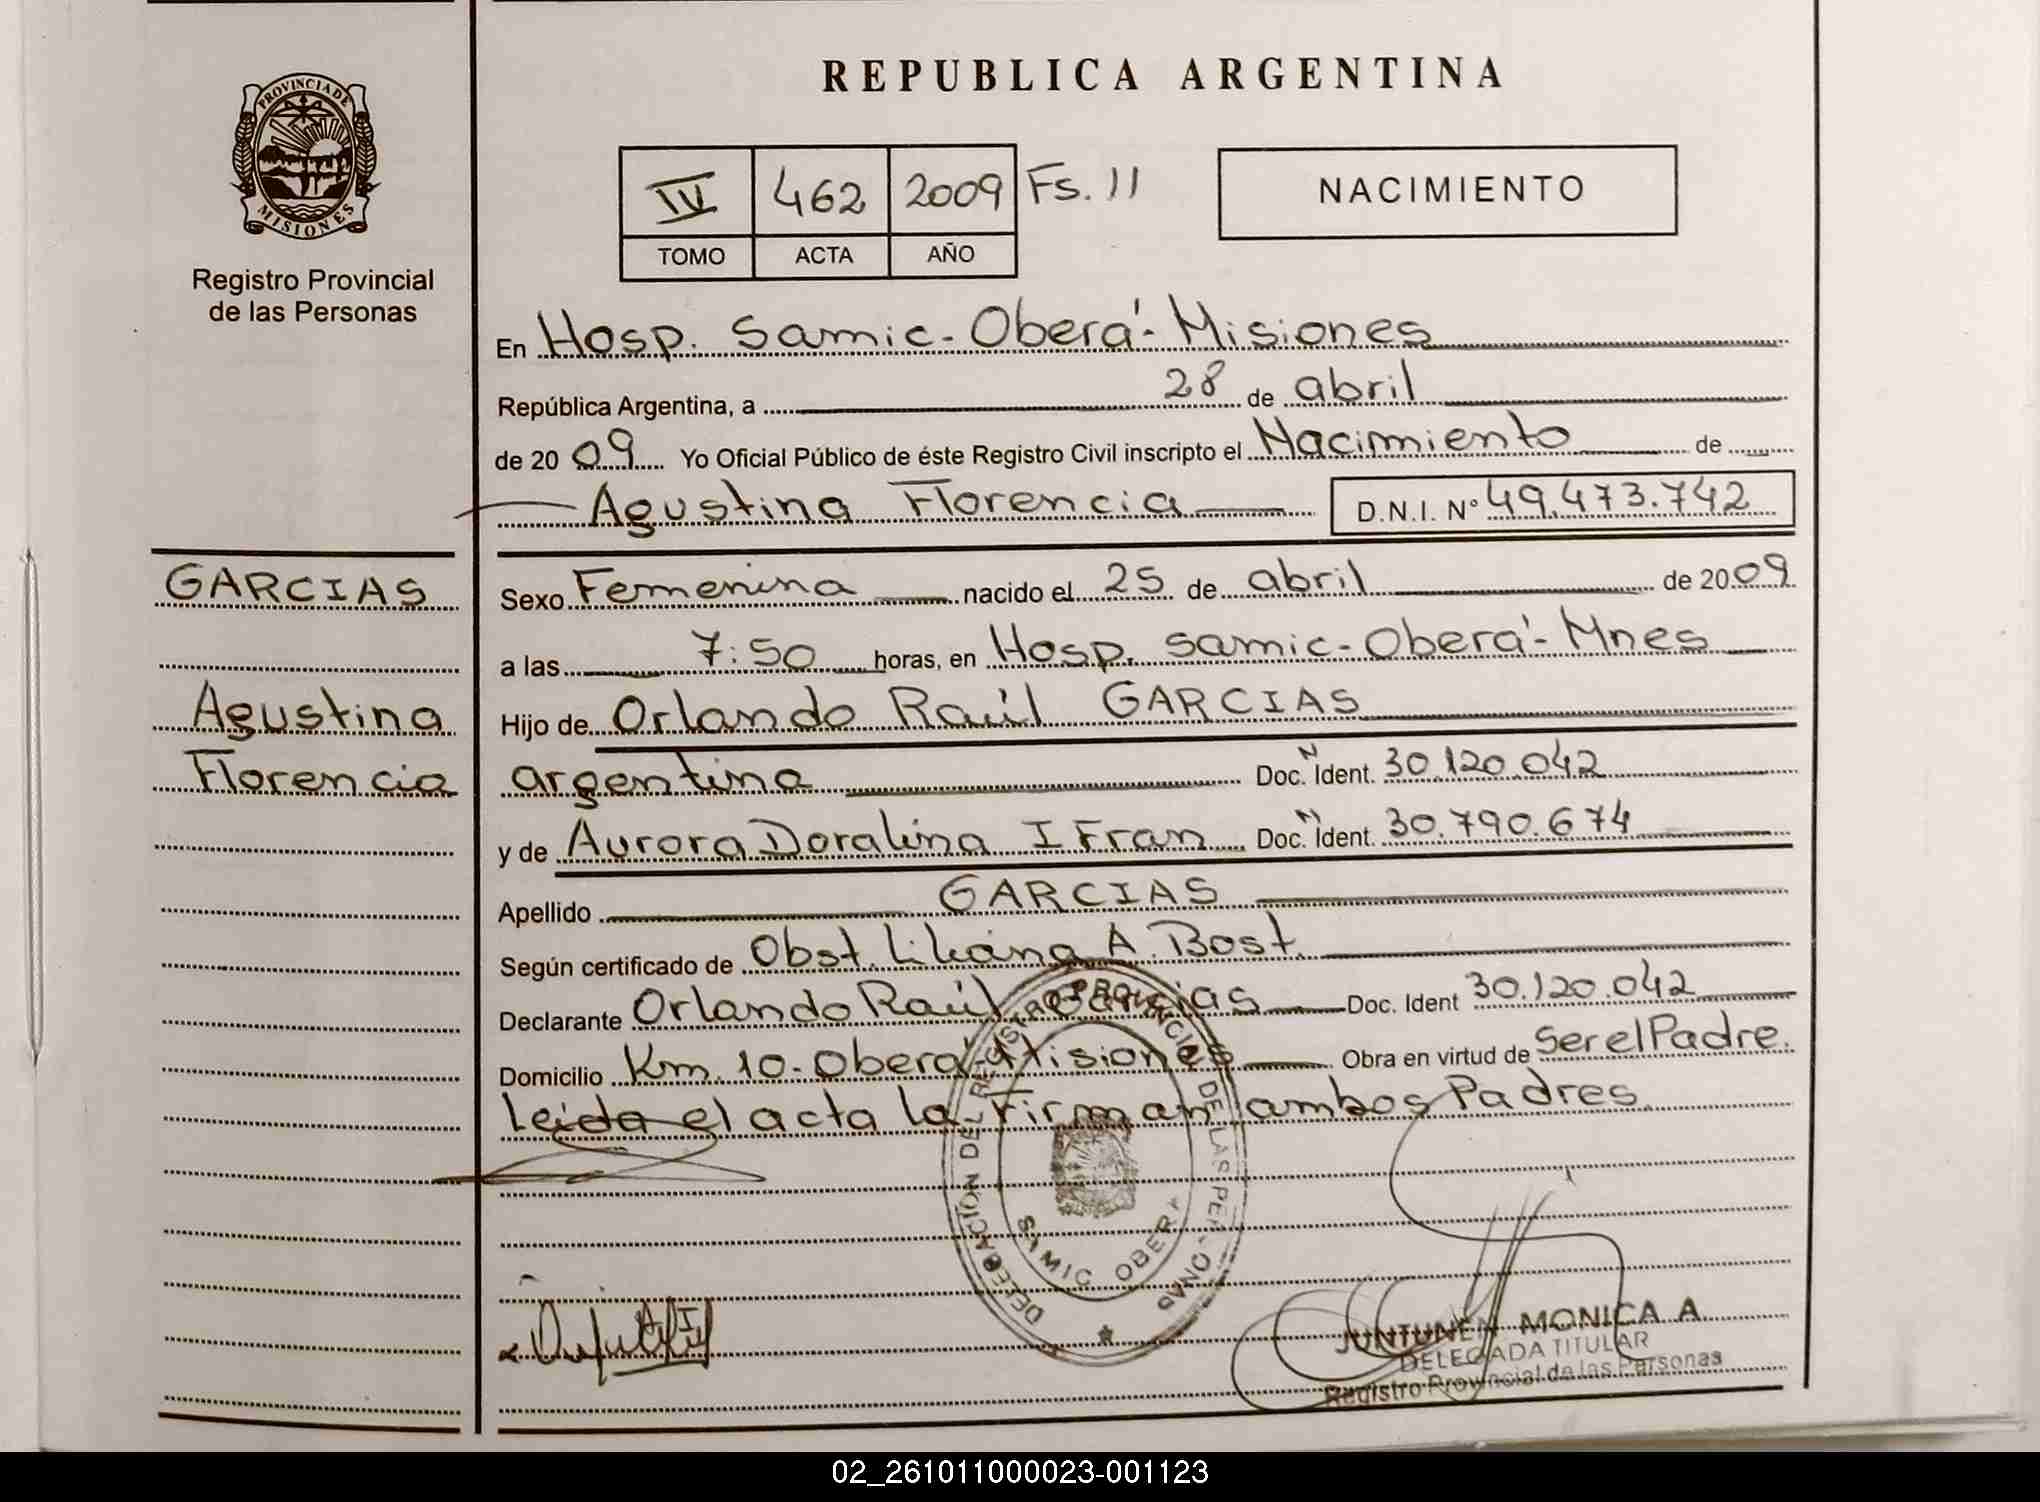 REPUBLICA ARGENTINA
PROVINCIA DE
MISIONES
Registro Provincial
de las Personas
IV 462 2009 Fs. 11
TOMO ACTA AÑO
NACIMIENTO
En Hosp. Samic - Oberá - Misiones
República Argentina, a 28 de abril
de 2009 Yo Oficial Público de éste Registro Civil inscripto el Nacimiento de
Agustina Florencia D.N.I. Nº 49.473.742
GARCIAS
Agustina
Florencia
Sexo Femenina nacido el 25 de abril de 2009
a las 7:50 horas, en Hosp. Samic - Oberá - Mnes
Hijo de Orlando Raúl GARCIAS
argentina Doc. N Ident. 30.120.042
y de Aurora Doralina IFran Doc. N Ident. 30.790.674
Apellido GARCIAS
Según certificado de Obst. Liliana A. Bost.
Declarante Orlando Raúl Garcias Doc. Ident 30.120.042
Domicilio Km. 10 - Oberá - Misiones Obra en virtud de Ser el Padre.
Leida el acta la Firman ambos Padres
DELEGACIÓN DEL REGISTRO PROVINCIAL DE LAS PERSONAS
SAMIC OBERA
JUNTUNEN MONICA A
DELEGADA TITULAR
Registro Provincial de las Personas
02_261011000023-001123